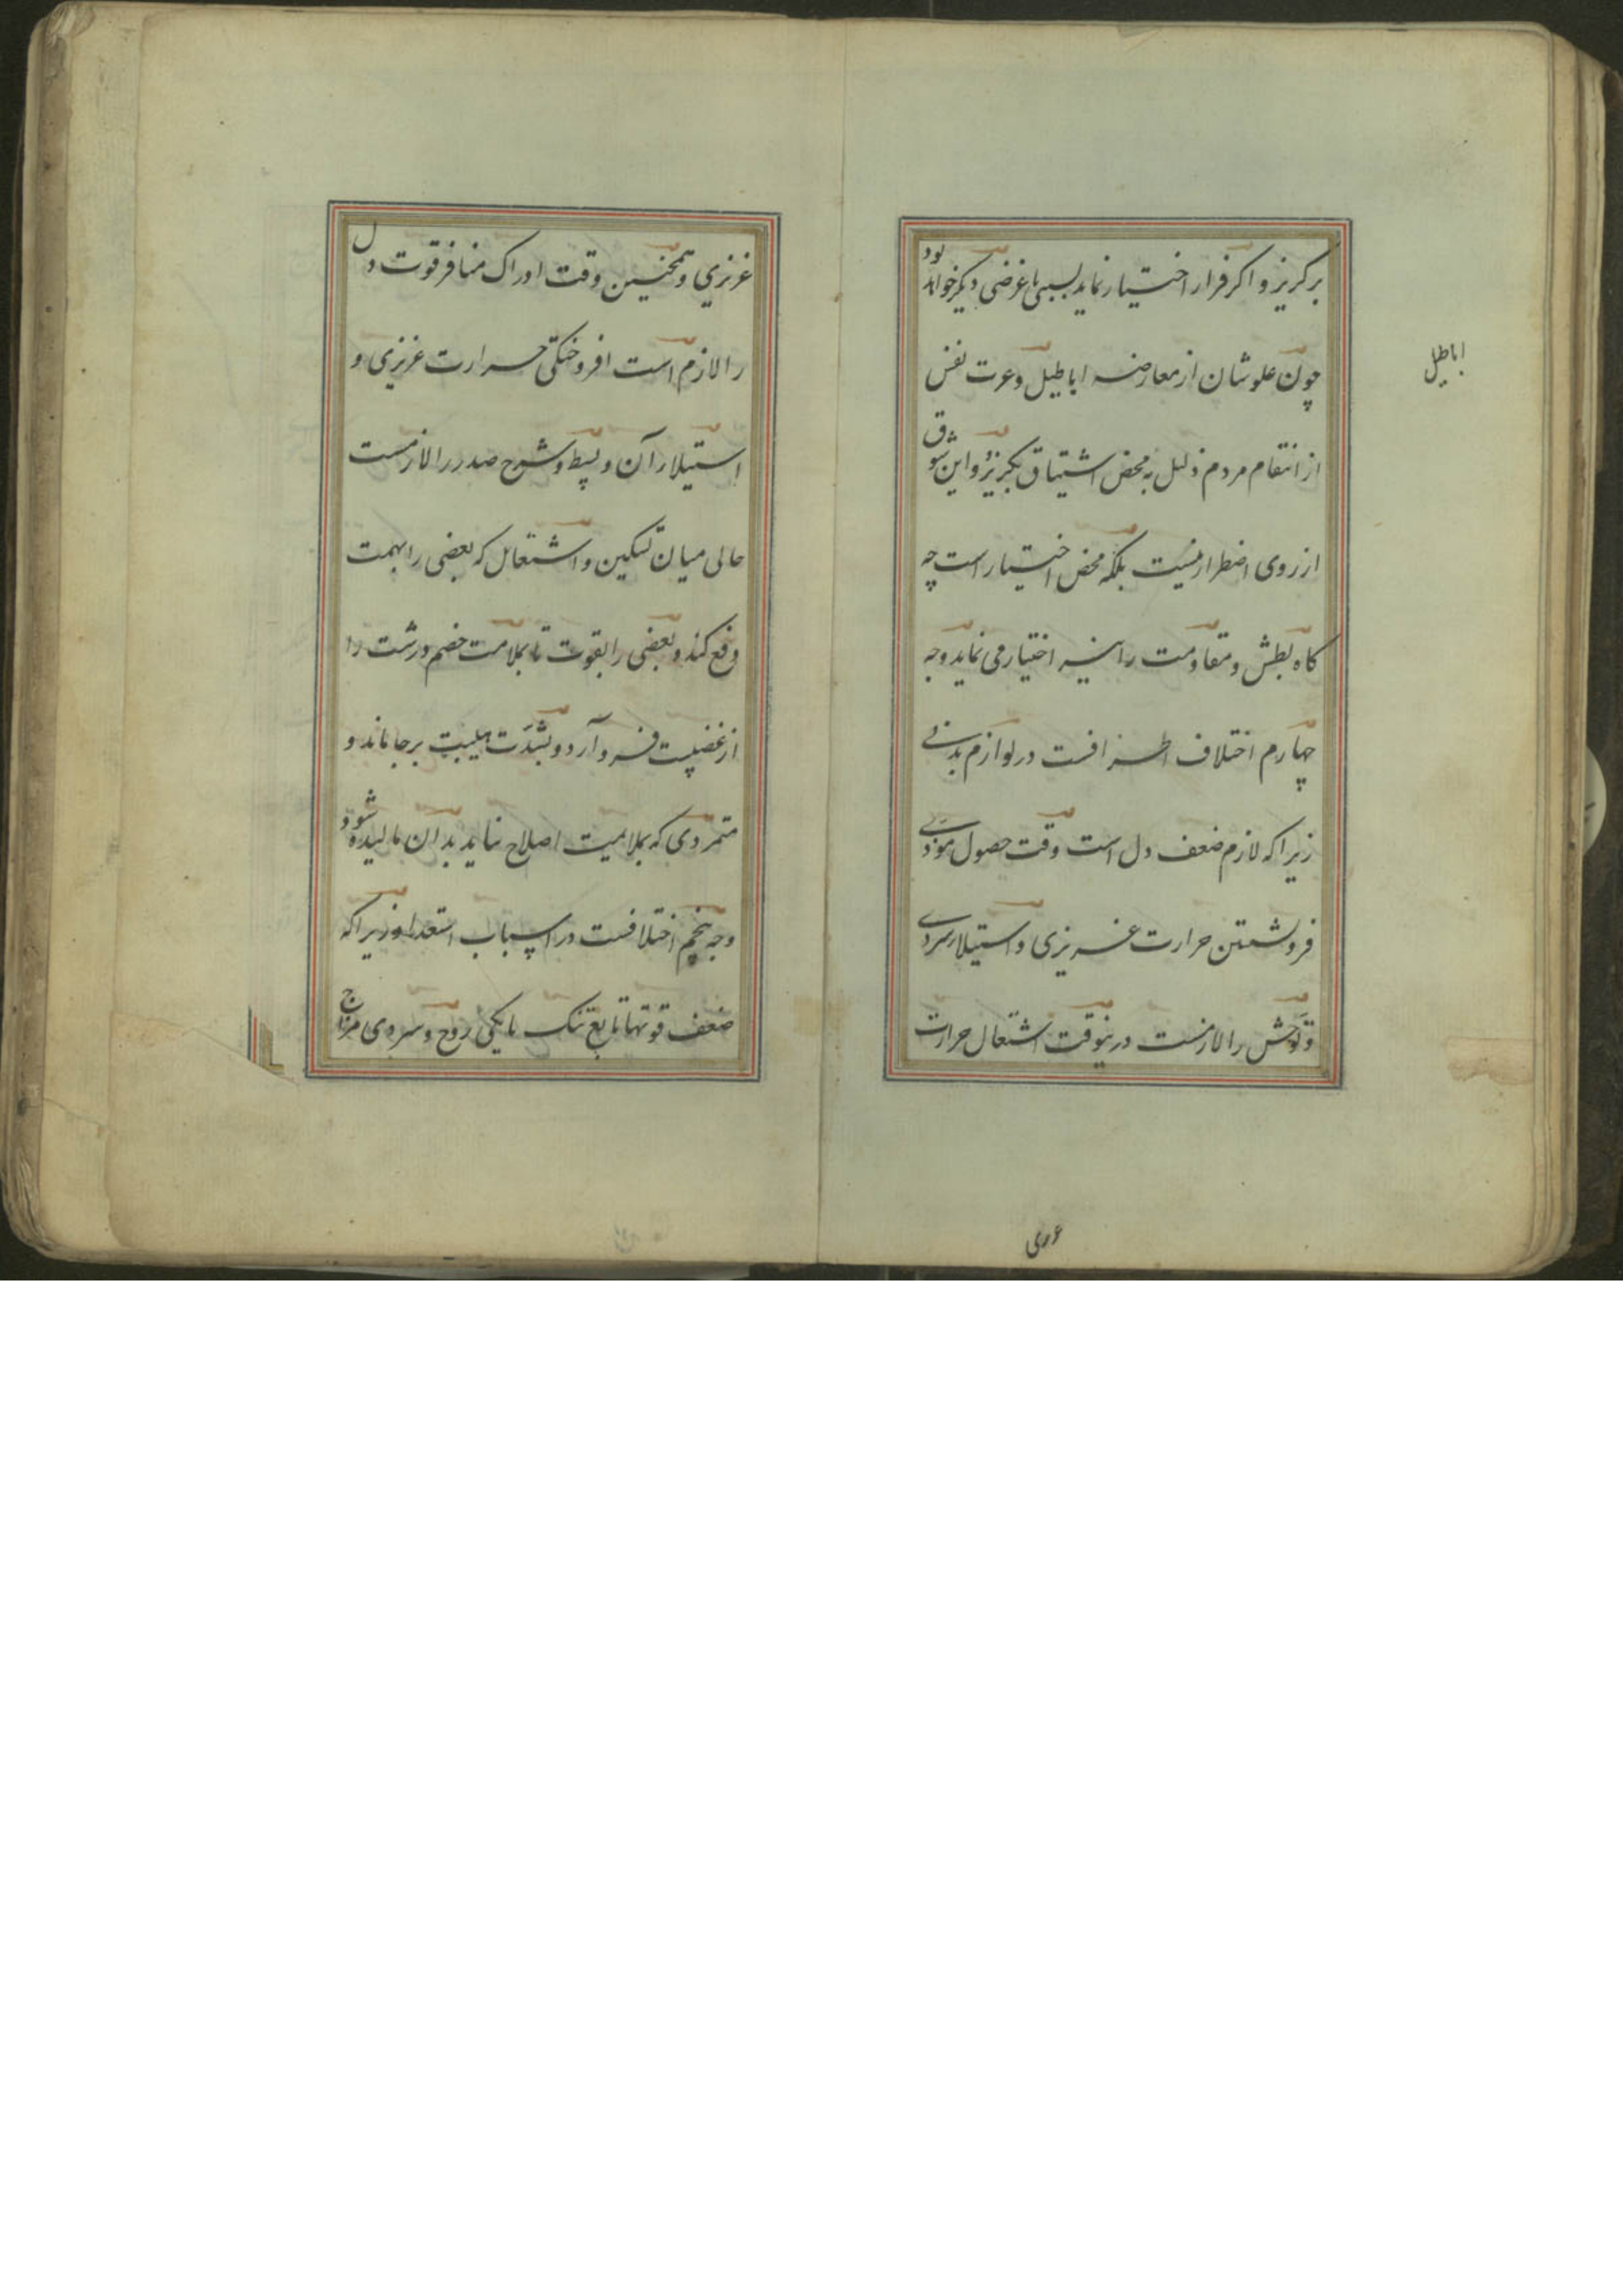 برکریز و اکر فرار اختیار نماید بسببی یا غرضی دیکر خواهد بود
چون علو شان از معارضه اباطیل و عرت نفس
اباطیل
از انتقام مردم ذلیل به محض اشتیاق بکریزد و این شوق
از روی اضطرار نیست بلکه محض اختیار است چه
کاه بطش و مقاومت را نیز اختیار می نماید وجه
چهارم اختلاف اطرافست در لوازم بدنی
زیرا که لازم ضعف دل است وقت حصول موذی
فرونشستن حرارت غریزی و استیلاء سردی
و قوتش را لازمست درینوقت اشتعال حرارت
عرری
غریزی و همچنین وقت ادراک منافر قوت دل
را لازم است افروختکی حرارت غریزی و
استیلاء آن و بسط و شرح صدر را لازمست
حالی میان تسکین و اشتعال که بعضی را بهمت
دفع کند و بعضی را بقوت تا بملامت خصم درشت را
از غضبیت فرو آرد و بشدت هیبت بر جا ماند و
متمردی که بملامیت اصلاح نیابد بدان مالیده شود و
وجه پنجم اختلافست در اسباب استعداد زیرا که
ضعف قوتها تابع تنک مایکی روح و سردی مزاج